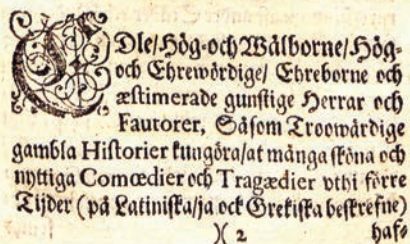 EDle/Hög-och Wälborne/Hög-
och Ehrewördige/ Ehreborne och
æstimerade gunstige Herrar och
Fautorer, Såsom Troowärdige
gambla Historier kungöra/at många sköna och
nyttiga Comœdier och Tragædier vthi förre
Tijder (på Latiniska/ja ock Grekiska beskrefne)
)( 2 haf-